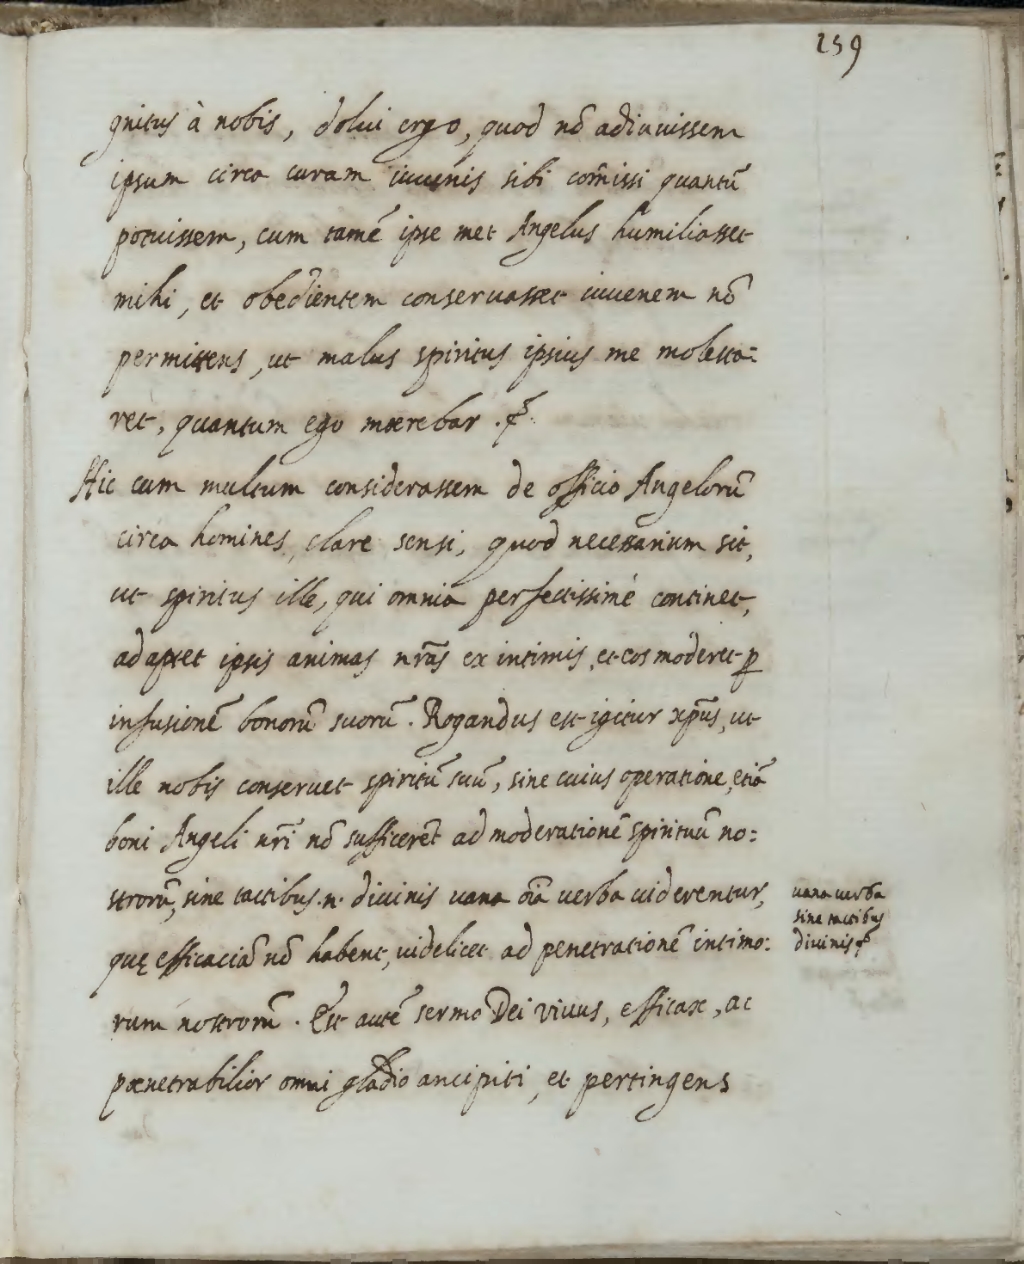 259
gnitus à nobis, dolui ergo, quod nō adiuuissem
ipsum circa curam iuuenis sibi com̄issi quantū
potuissem, cum tamē ipse met Angelus humiliasset
mihi, et obedientem conseruasset iuuenem nō
permittens, ut malus spiritus ipsius me molesta=
ret, quantum ego merebar.
Hic cum multum considerassem de officio Angelorū
circa homines, clare sensi, quod necessarium sit,
ut spiritus ille, qui omnia perfectissimè continet,
adaptet ipsis animas nr̄as ex intimis, et eos moderet p
infusionē bonorū suorū. Rogandus est igitur xp̄us, ut
ille nobis conseruet spiritū suū, sine cuius operatione, etiā
boni Angeli nr̄i nō sufficerēt ad moderationē spirituū no=
strorū, sine tactibus .n. diuinis uana oīa uerba uiderentur,
quę efficaciā nō habent, uidelicet ad penetrationē intimo=
rum nostrorū. Est autē sermo Dei viuus, efficax, ac
poenetrabilior omni gladio ancipiti, et pertingens
uana uerba
sine tactibus
diuinis